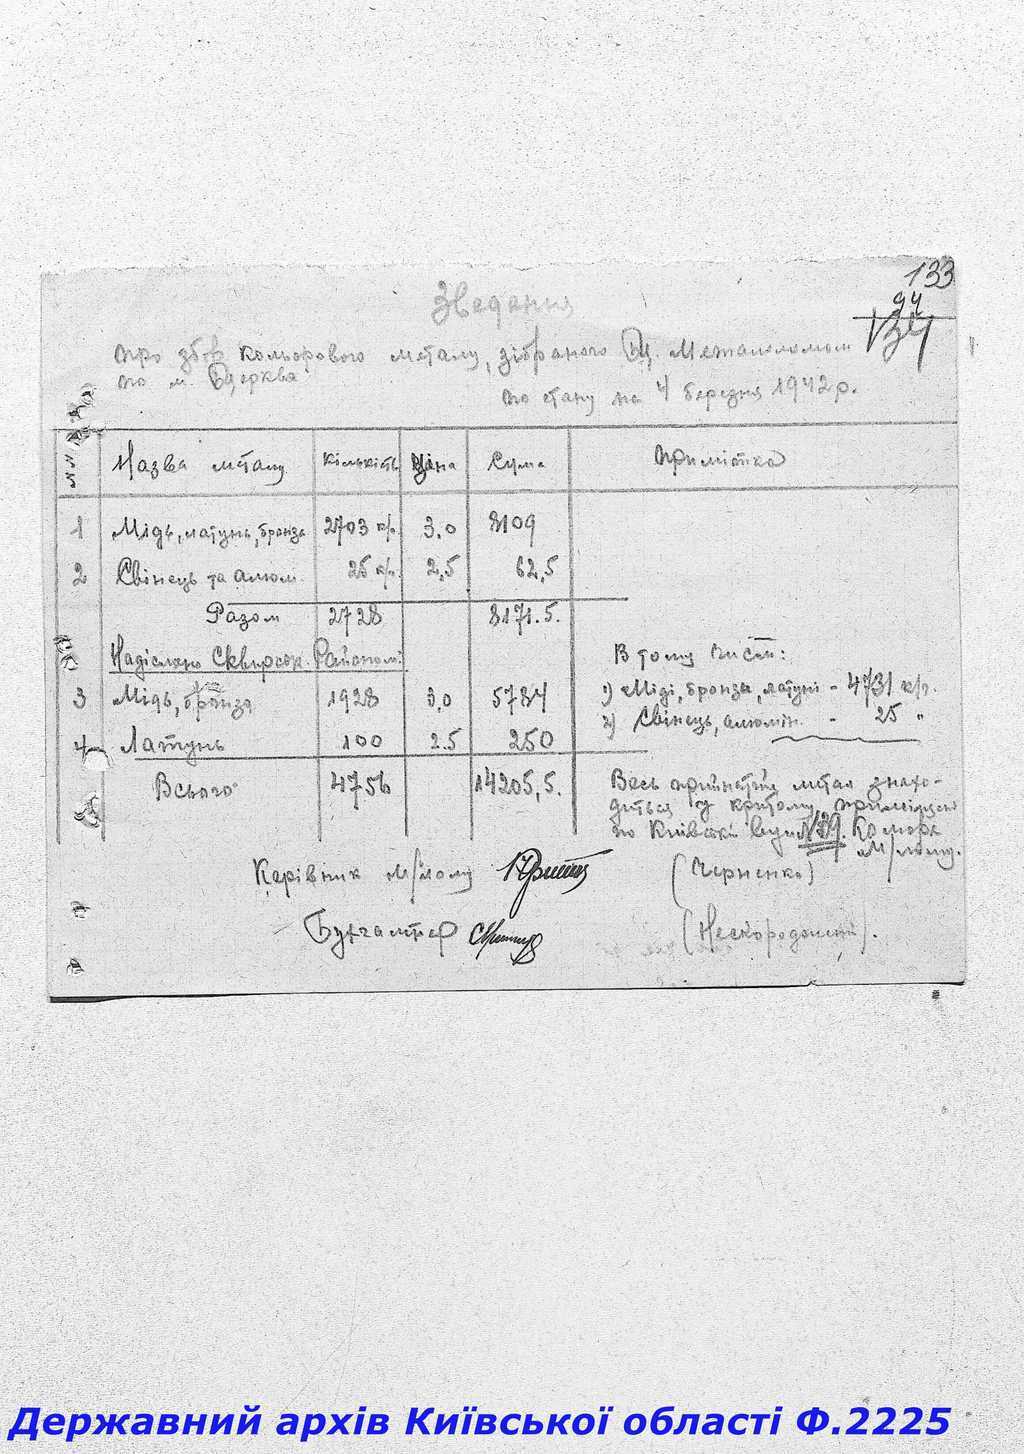 133
94
134
Зведення
про збір кольорового металу, зібраного Бц. Металоломом
по м. Бцерква
по стану на 4 березня 1942 р.
№№ Назва металу кількість Ціна Сума Примітка
1 Мідь, латунь, бронза 2703 кг. 3,0 8109
2 Свінець та алюм. 25 кг. 2,5 62,5
Разом 2728 8171.5.
Надіслано Сквирськ. Районом:
В тому числі:
3 Мідь, бронза 1928 3,0 5784
1) Міді, бронза, латуні - 4731 кг.
2) Свінець, алюмін. - 25 "
4 Латунь 100 2.5 250
Всього 4756 14205,5.
Весь прийнятий метал знахо-
диться у критому приміщені
по Київській вул №39. Комора
м/лому.
Керівник м/лому (Черненко)
Бухгалтер